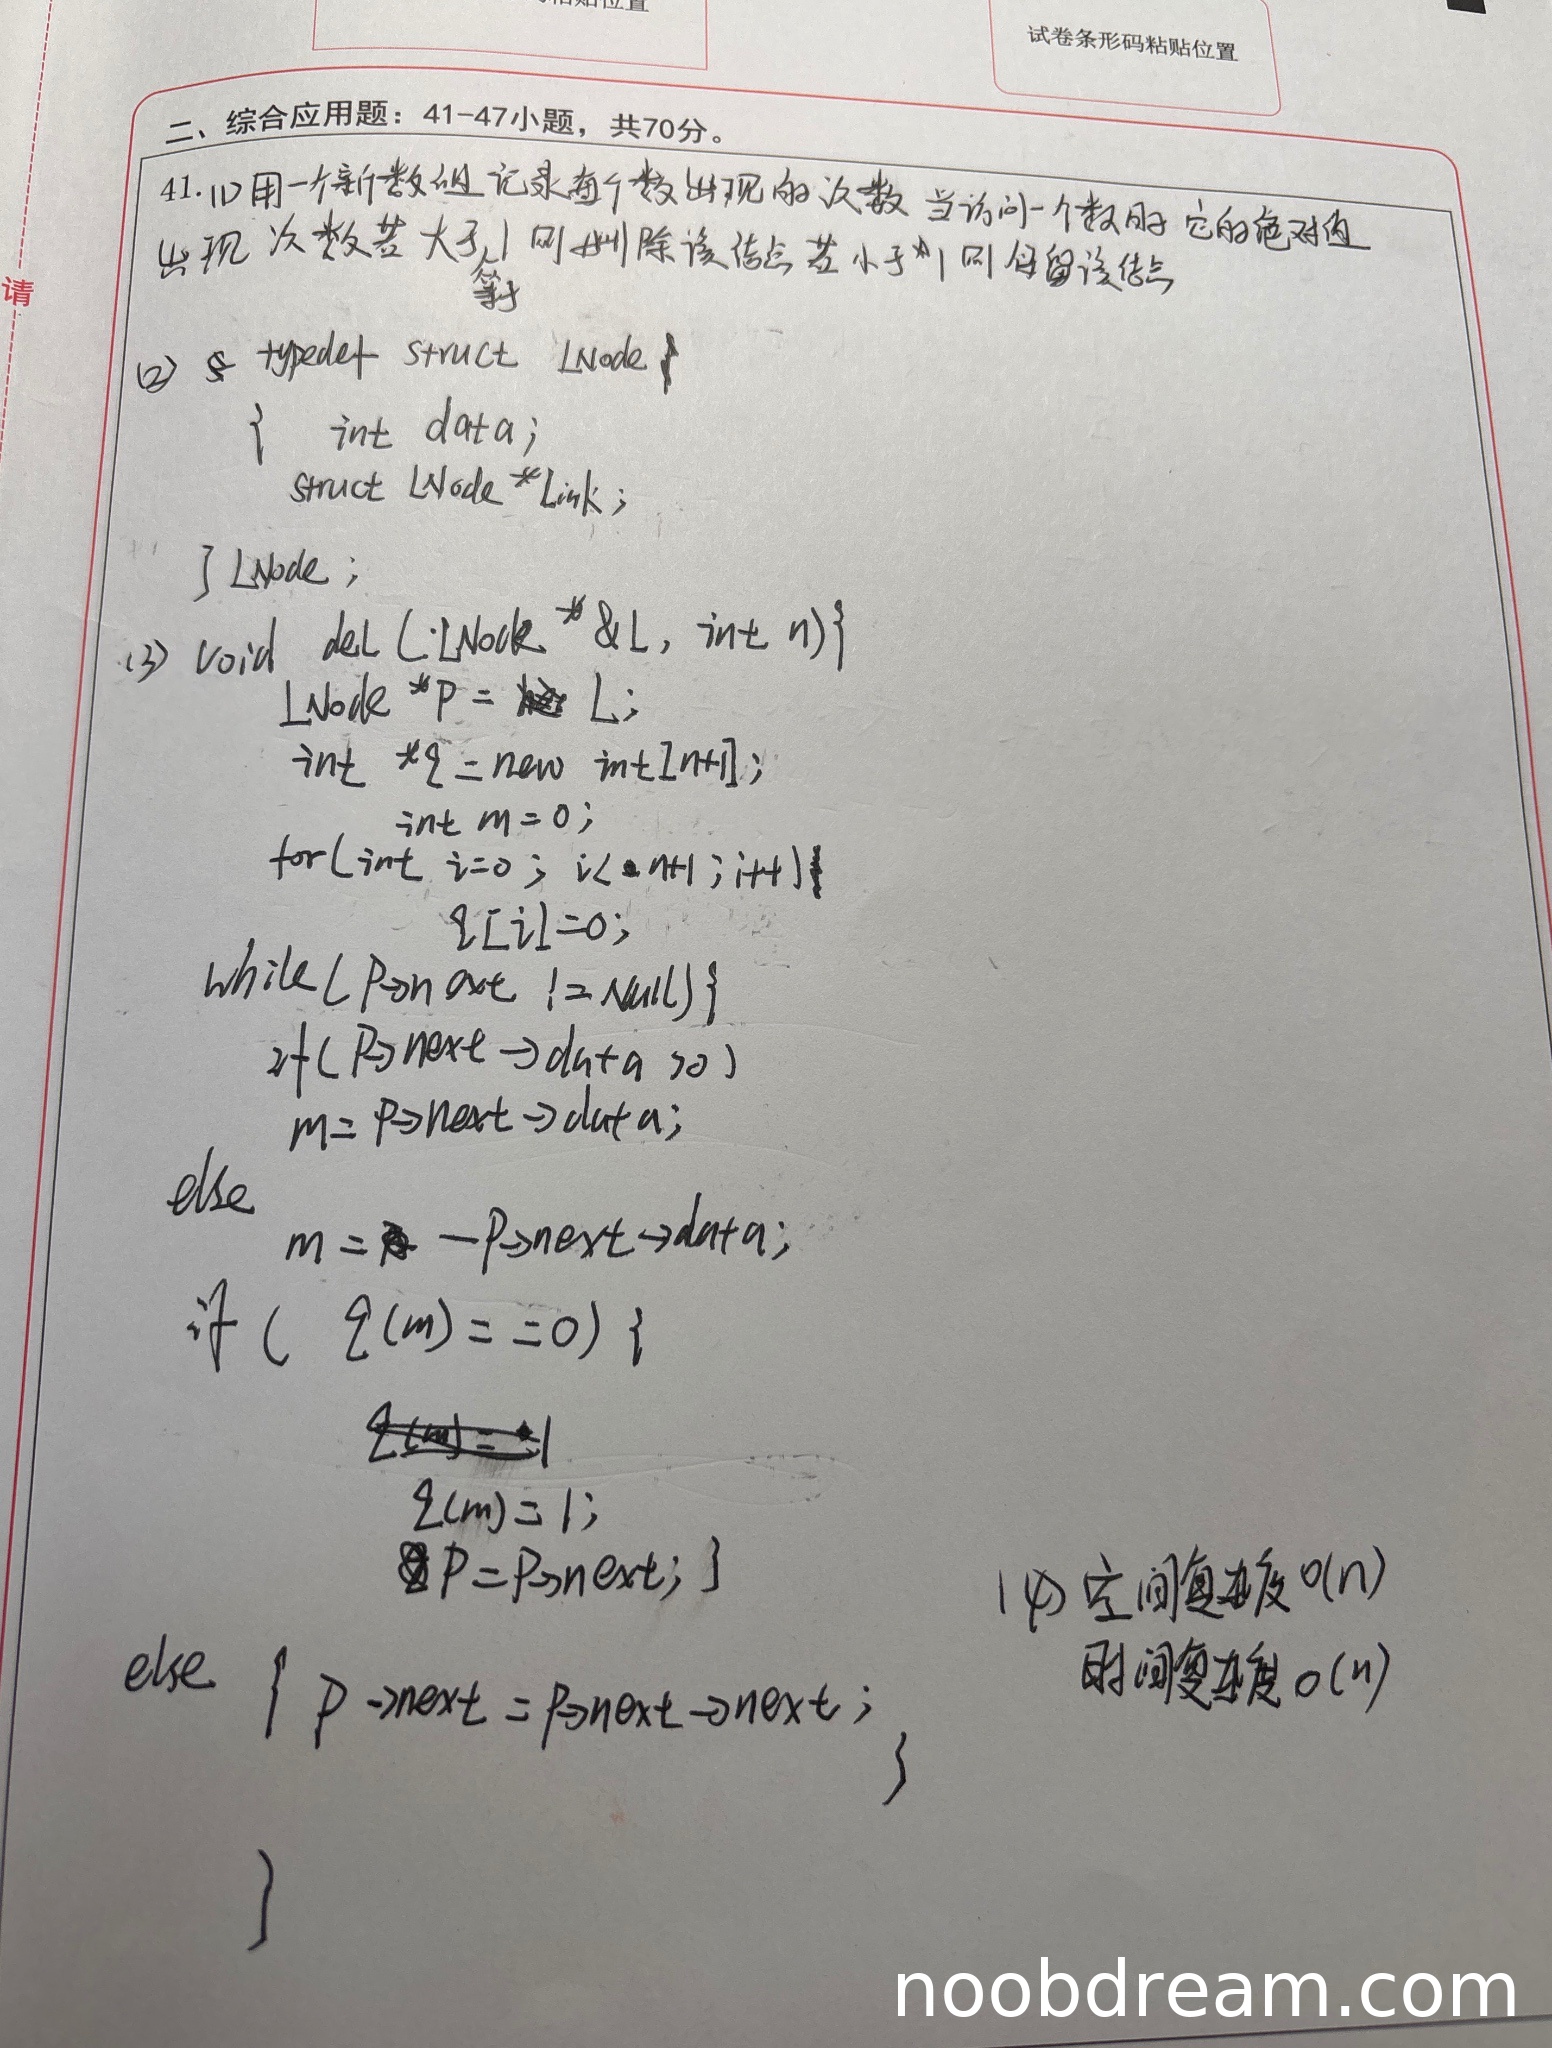 粘贴位置
试卷条形码粘贴位置
二、综合应用题：41-47小题，共70分。
41.(1)用一个新数组记录每个数出现的次数 当访问一个数时 它的绝对值
出现次数若大于等于1则删除该结点若小于1则保留该结点
请
(2) typedef struct LNode
{ int data;
struct LNode *Link;
} LNode;
(3) void del (LNode *&L, int n){
LNode *P = L;
int *q = new int[n+1];
int m=0;
for(int i=0; i<n+1; i++)
q[i]=0;
while(P->next != Null){
if(P->next->data >0)
m= P->next->data;
else
m = -P->next->data;
if( q(m)==0) {
q(m)=1;
P=P->next; }
else { P->next = P->next->next;
}
}
(4) 空间复杂度 O(n)
时间复杂度 O(n)
noobdream.com